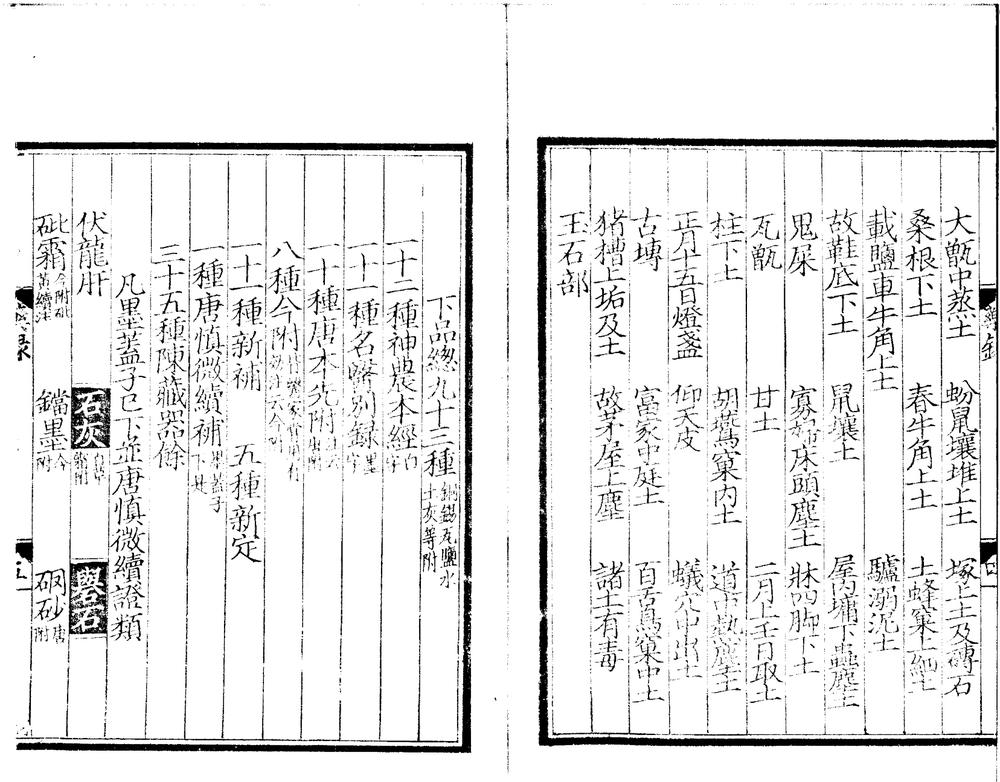 大甑中蒸土 蚡鼠壤堆上土 塚上土及磚石
桑根下土 春牛角上土 土蜂窠上細土
載鹽車牛角上土 驢溺泥土
故鞋底下土 鼠壤土 屋內墉下蟲塵土
鬼屎 寡婦床頭塵土 牀四腳下土
瓦甑 甘土 二月上壬日取土
柱下土 胡鷰窠內土 道中熱塵土
正月十五日燈盞 仰天皮 蟻穴中出土
古塼 富家中庭土 百舌鳥窠中土
猪槽上垢及土 故茅屋上塵 諸土有毒
玉石部
下品總九十三種 銅錫瓦鹽水土灰等附
一十二種神農本經 白字
一十一種名醫別録 墨字
一十種唐本先附 注云唐附
八種今附
一十一種新補 五種新定
一種唐慎微續補 墨蓋子下是
三十五種陳藏器餘
凡墨蓋子已下並唐慎微續證類
伏龍肝 石灰 礜石
砒霜 今附砒黃續注 鐺墨 今附 硇砂 唐附